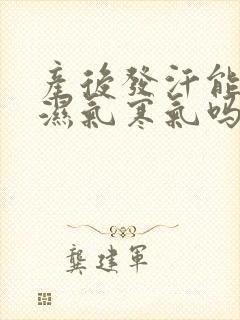 產後發汗能
濕氣寒氣嗎
龔建軍